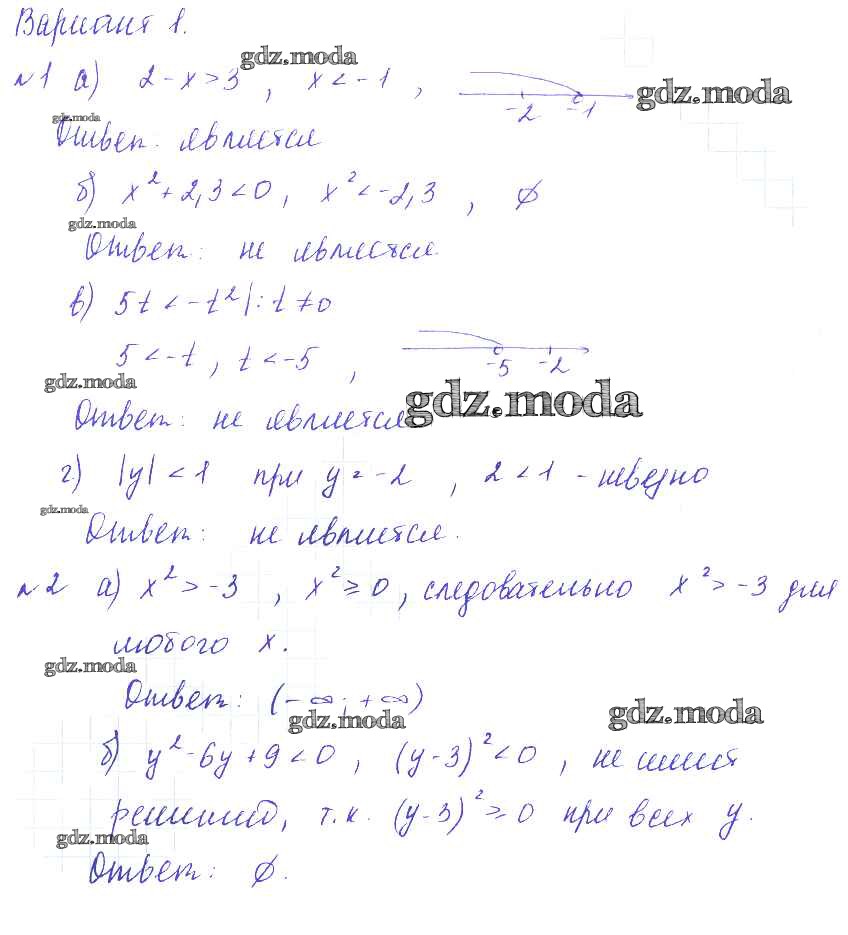 Вариант 1.
№1 а) 2-x>3, x<-1,
-2 -1
Ответ: является
б) x²+2,3<0, x²<-2,3, ∅
Ответ: не является.
в) 5t<-t² |:t≠0
5<-t, t<-5,
-5 -2
Ответ: не является
г) |y|<1 при y=-2, 2<1 - неверно
Ответ: не является.
№2 а) x²>-3, x²≥0, следовательно x²>-3 для
любого x.
Ответ: (-∞; +∞)
б) y²-6y+9<0, (y-3)²<0, не имеет
решений, т.к. (y-3)²≥0 при всех y.
Ответ: ∅.
gdz.moda
gdz.moda
gdz.moda
gdz.moda
gdz.moda
gdz.moda
gdz.moda
gdz.moda
gdz.moda
gdz.moda
gdz.moda